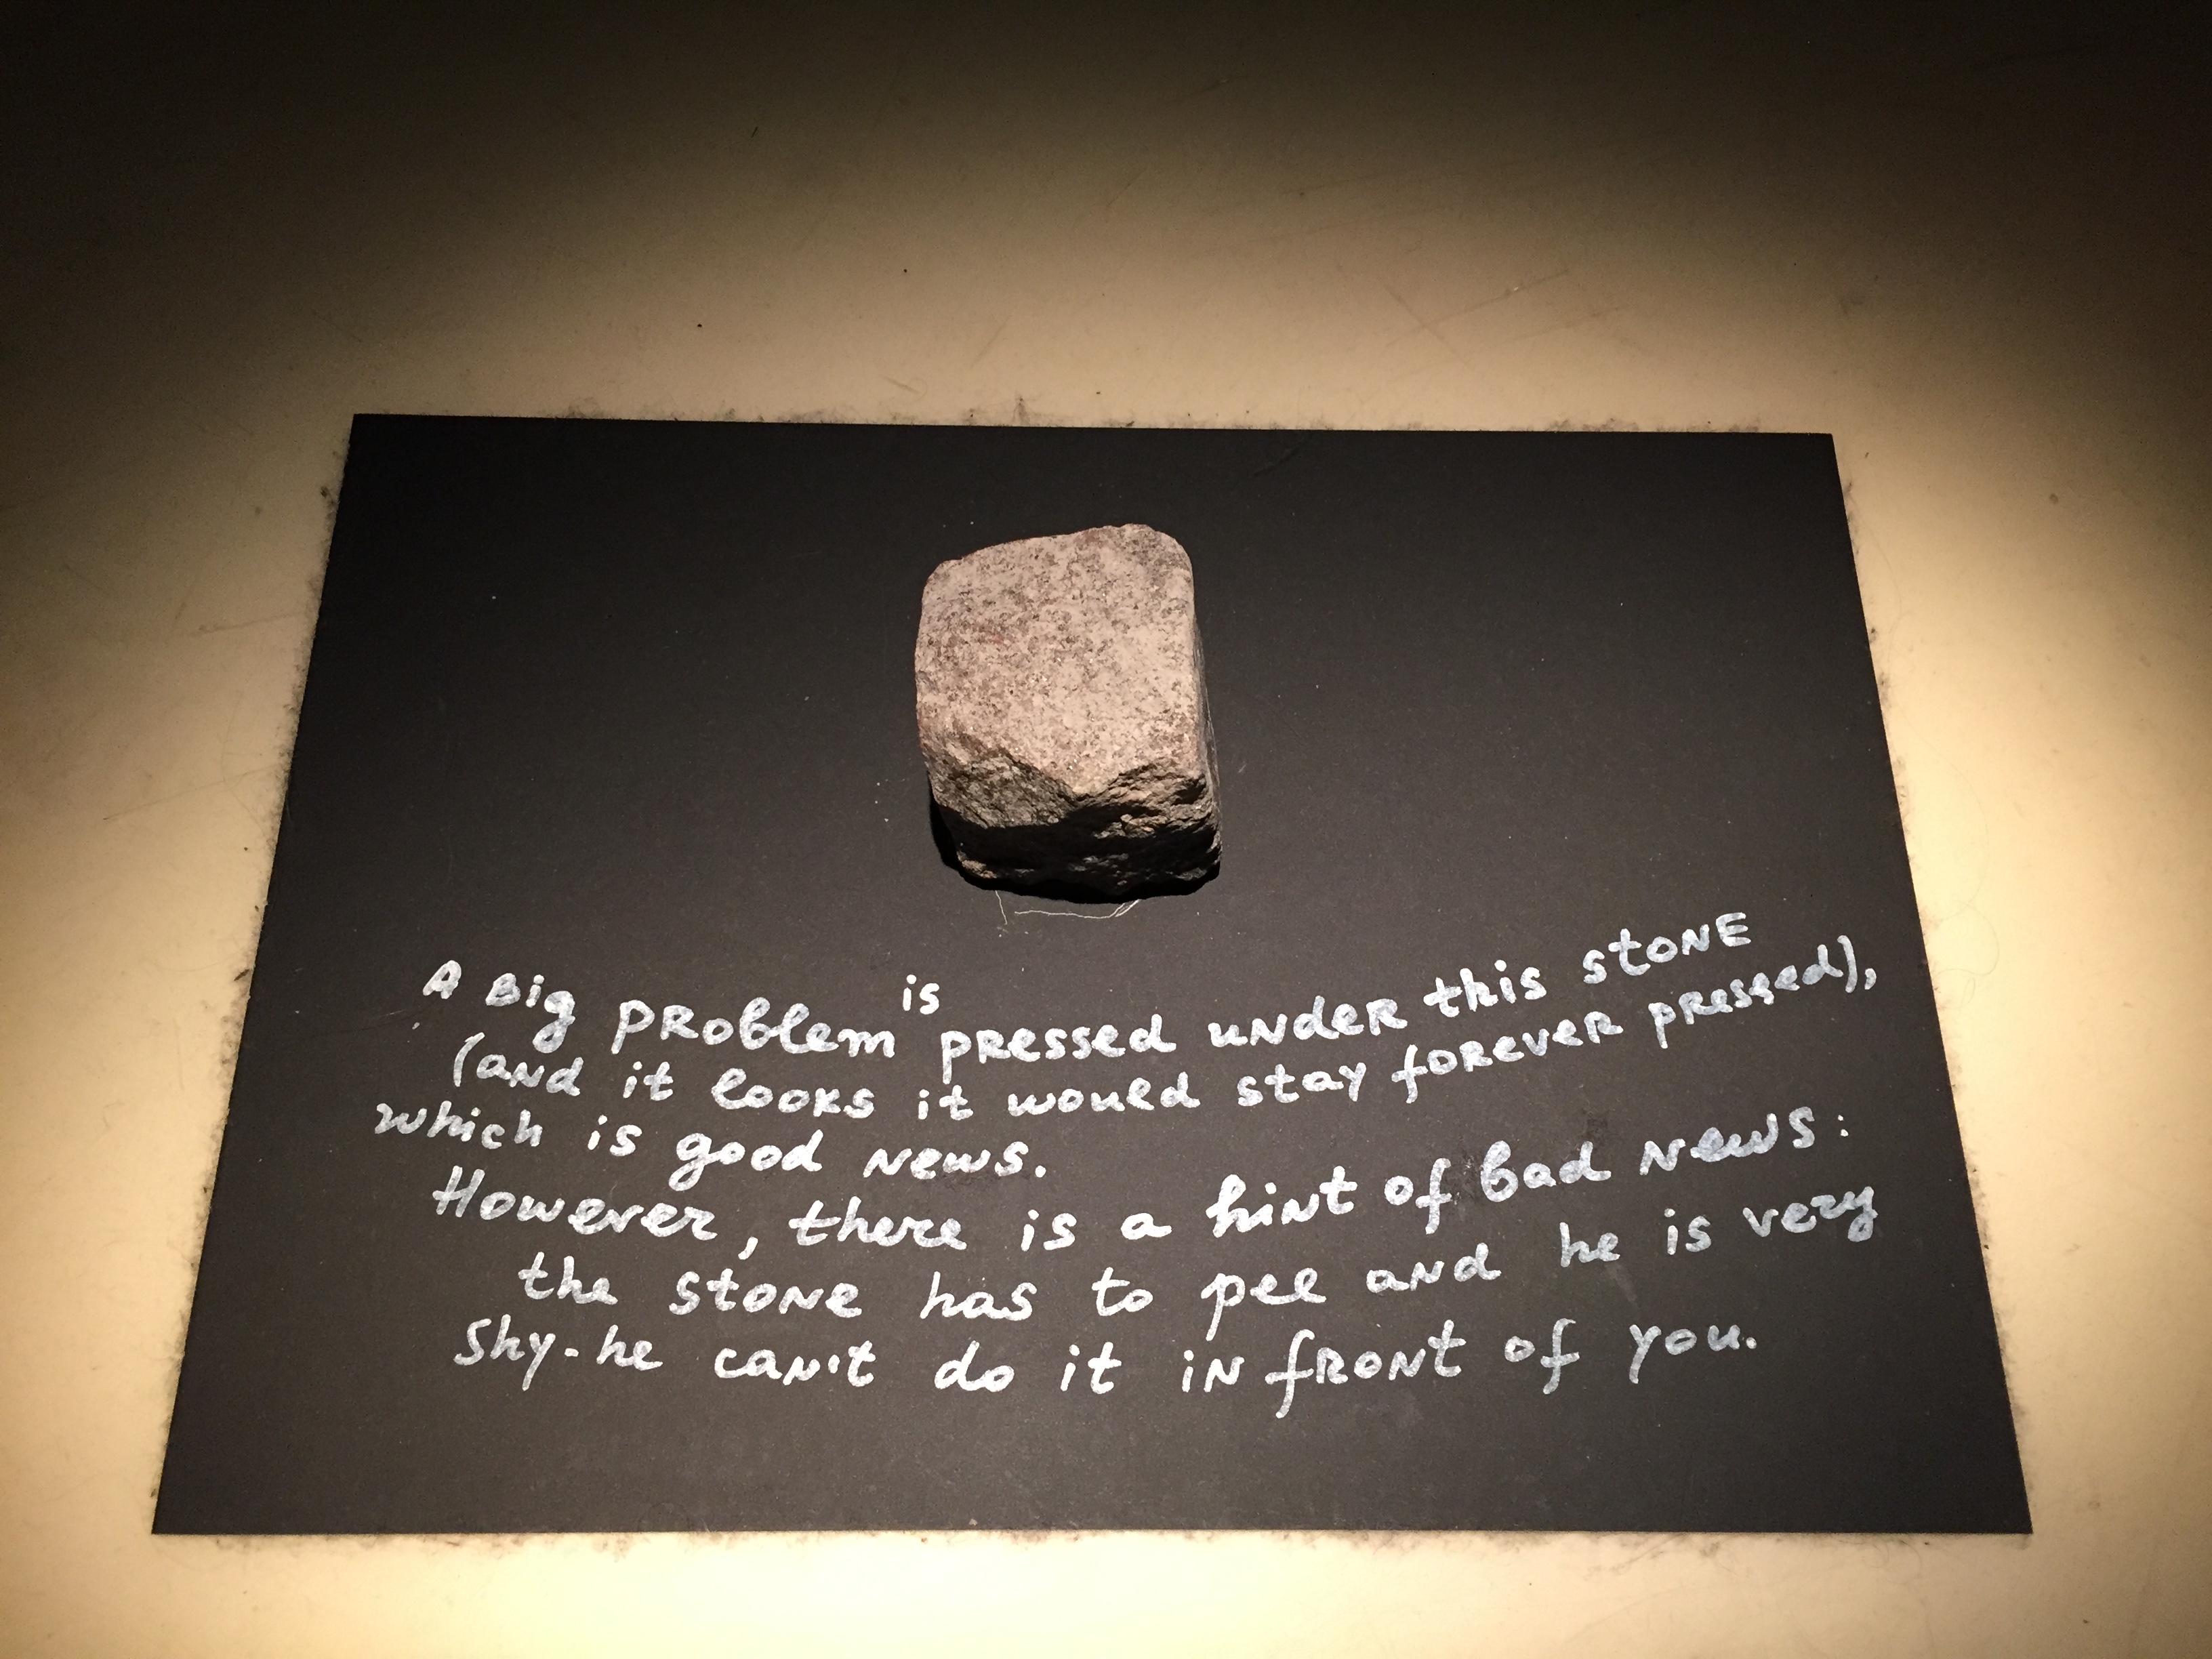 A Big problem is pressed under this stone
(and it looks it would stay forever pressed),
which is good news.
However, there is a hint of bad news:
the stone has to pee and he is very
Shy-he can't do it in front of you.